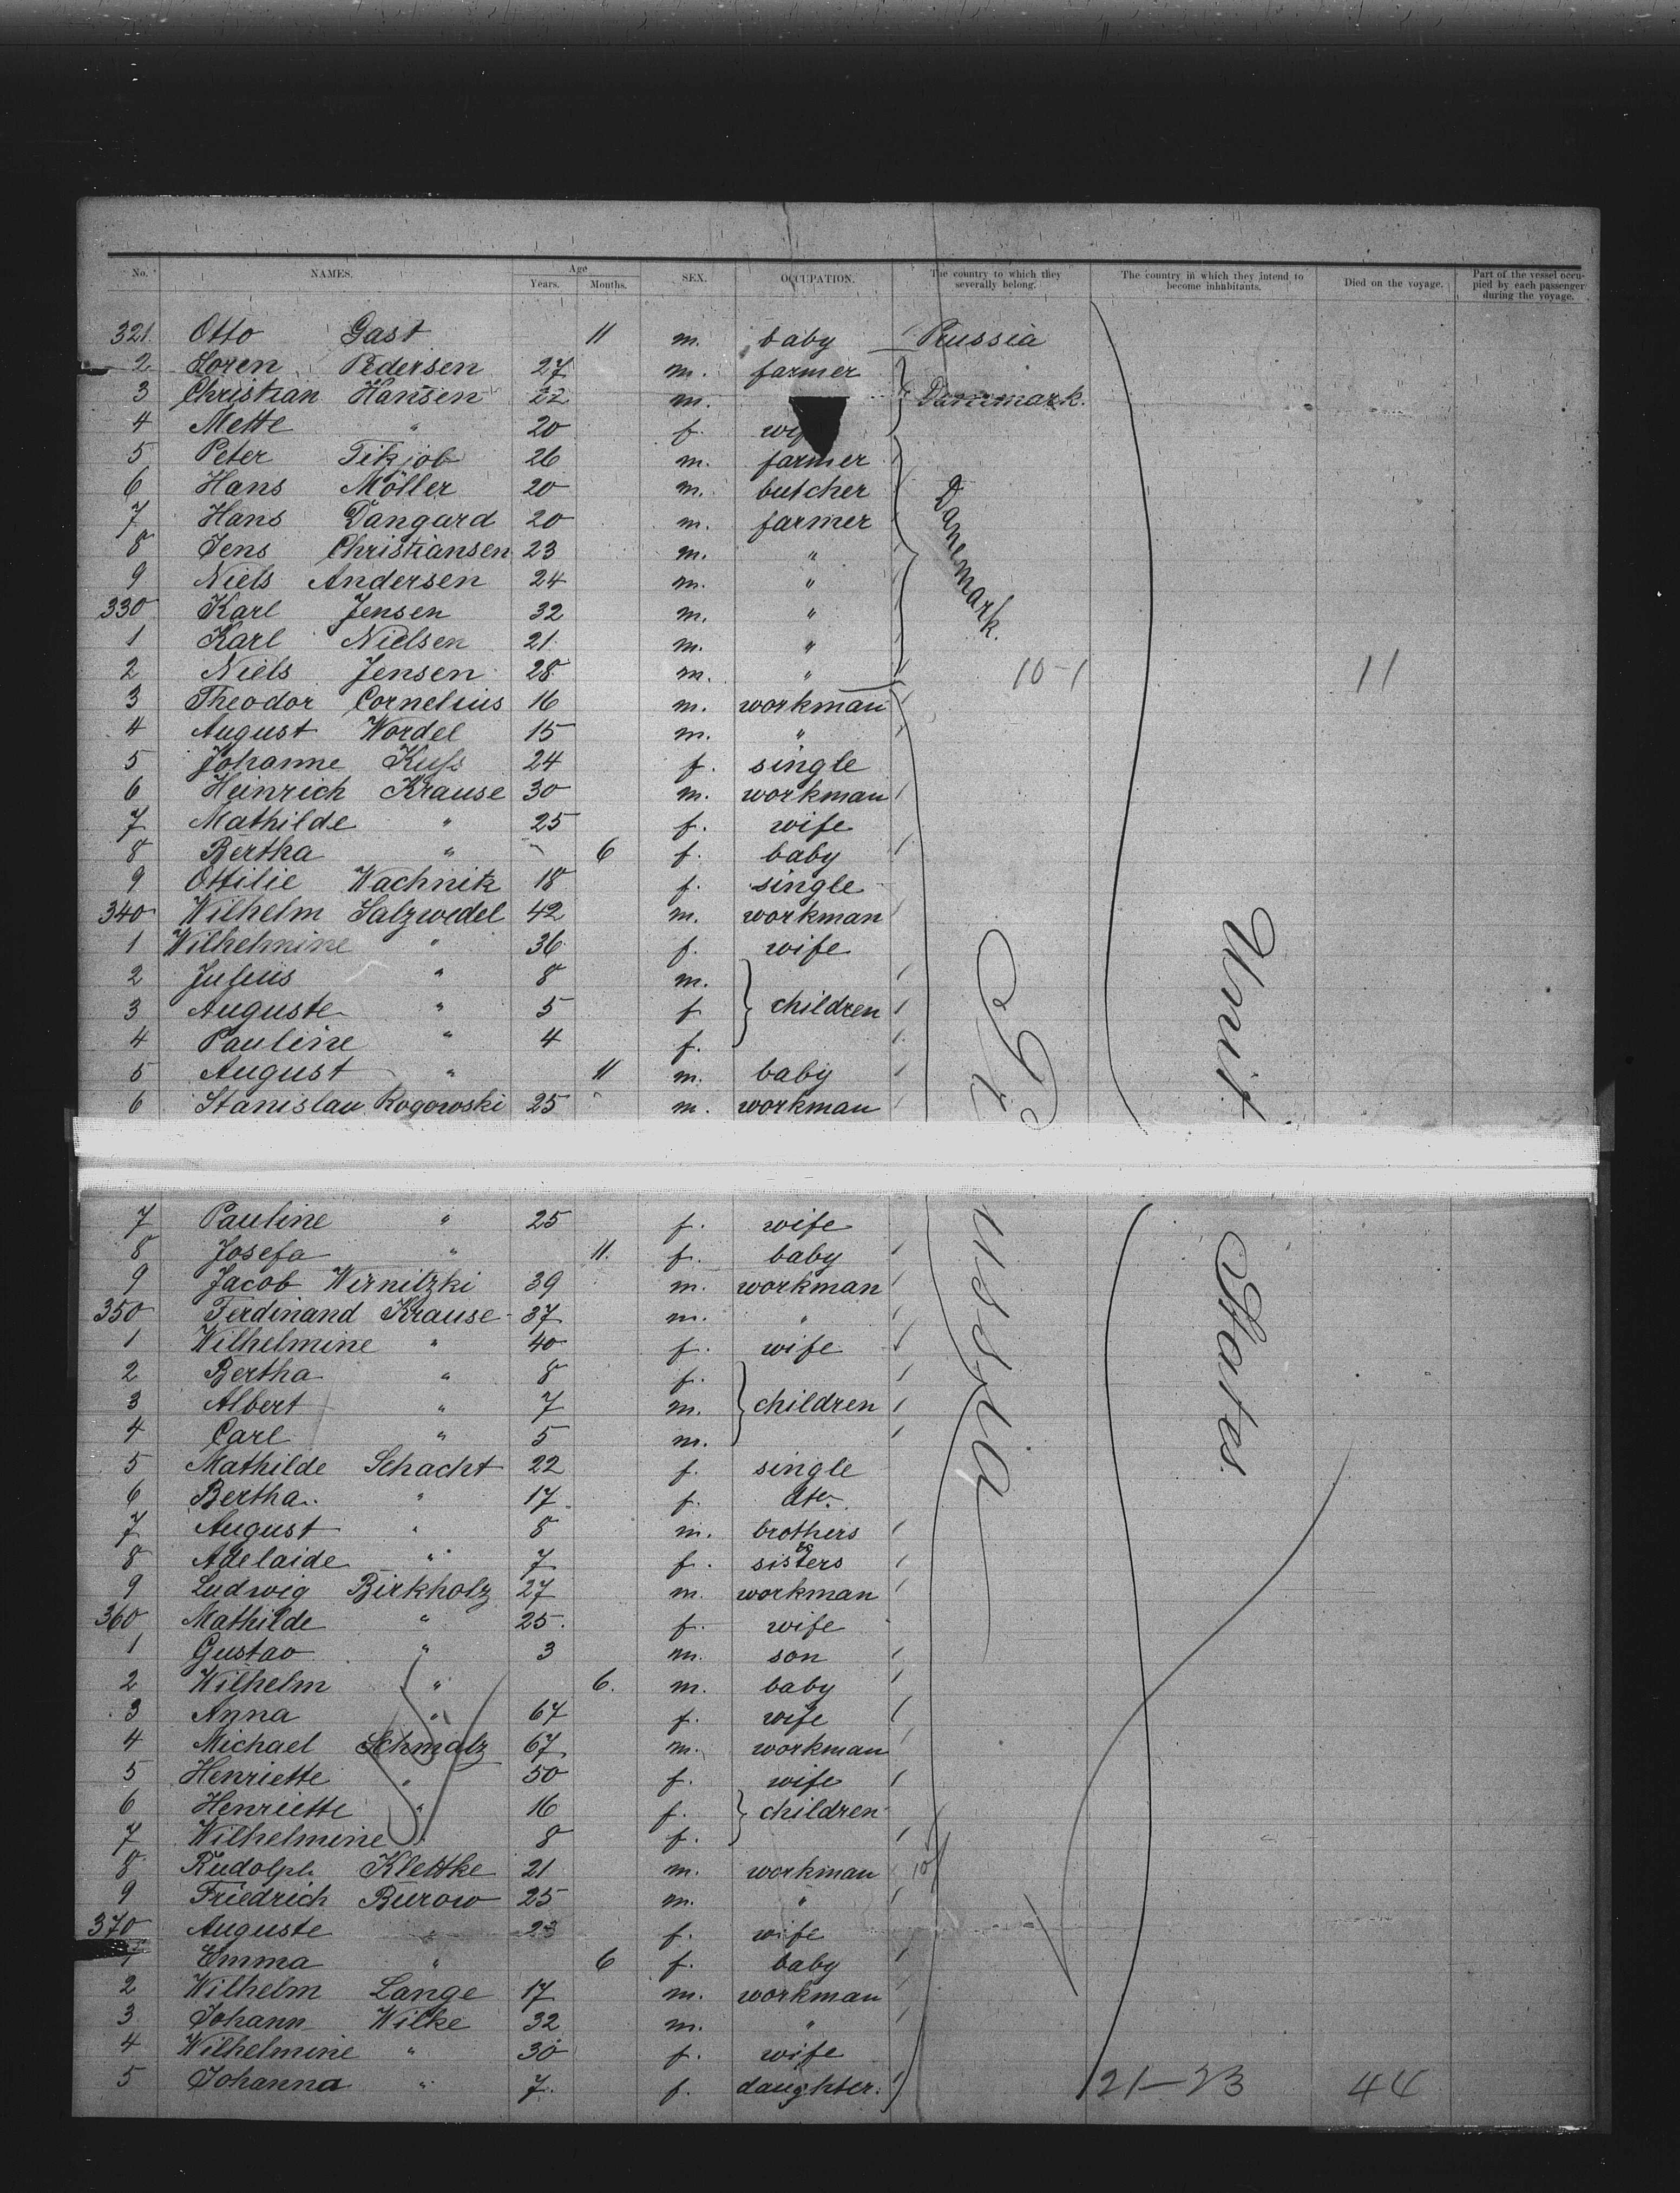 No. NAMES. Age Years. Months. SEX. OCCUPATION. The country to which they severally belong. The country in which they intend to become inhabitants. Died on the voyage. Part of the vessel occupied by each passenger during the voyage.
321 Otto Gast 11 m. baby Russia
2 Soren Pedersen 27 m. farmer
3 Christian Hansen 22 m. Danemark.
4 Mette " 20 f. wife
5 Peter Tikjob 26 m. farmer
6 Hans Möller 20 m. butcher
7 Hans Dangard 20 m. farmer Danemark.
8 Jens Christiansen 23 m. "
9 Niels Andersen 24 m. "
330 Karl Jensen 32 m. "
1 Karl Nielsen 21 m. "
2 Niels Jensen 28 m. " 10-1 11
3 Theodor Cornelius 16 m. workman
4 August Wordel 15 m. "
5 Johanne Kuss 24 f. single
6 Heinrich Krause 30 m. workman
7 Mathilde " 25 f. wife
8 Bertha " 6 f. baby
9 Ottilie Wachnik 18 f. single
340 Wilhelm Salzwedel 42 m. workman
1 Wilhelmine " 36 f. wife
2 Julius " 8 m.
3 Auguste " 5 f children
4 Pauline " 4 f.
5 August " 11 m. baby
6 Stanislau Rogowski 25 m. workman
7 Pauline " 25 f. wife
8 Josefa " 11. f. baby
9 Jacob Wirnitzki 39 m. workman
350 Ferdinand Krause 37 m. "
1 Wilhelmine " 40 f. wife
2 Bertha " 8 f.
3 Albert " 7 m. children
4 Carl " 5 m.
5 Mathilde Schacht 22 f. single
6 Bertha " 17 f. dto.
7 August " 8 m. brothers
8 Adelaide " 7 f. & sisters
9 Ludwig Birkholz 27 m. workman
360 Mathilde " 25. f. wife
1 Gustav " 3 m. son
2 Wilhelm " 6. m. baby
3 Anna " 67 f. wife
4 Michael Schmalz 67 m. workman
5 Henriette " 50 f. wife
6 Henriette " 16 f. children
7 Wilhelmine " 8 f.
8 Rudolph Klettke 21 m. workman
9 Friedrich Burow 25 m. "
370 Auguste " 23 f. wife
1 Emma " 6 f. baby
2 Wilhelm Lange 17 m. workman
3 Johann Wilke 32 m. "
4 Wilhelmine " 30 f. wife
5 Johanna " 7. f. daughter.
Unit States
21-23 44